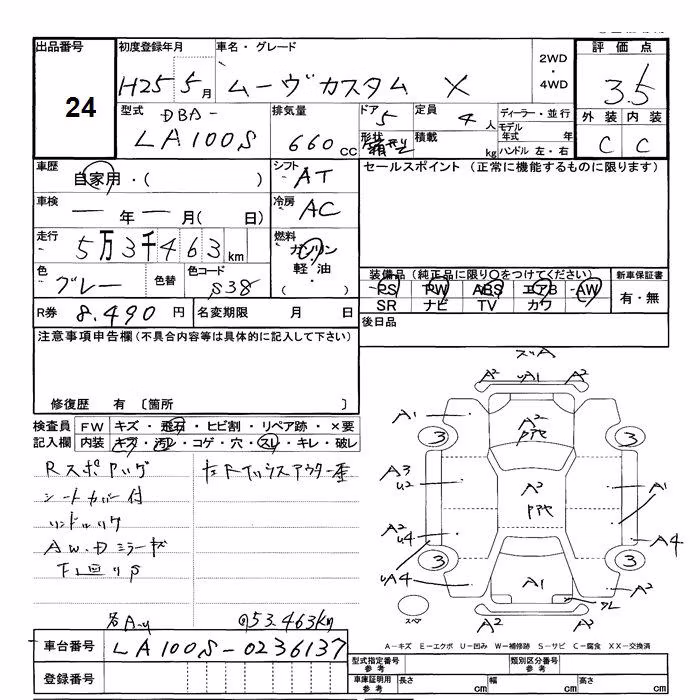 出品番号 初度登録年月 車名・グレード 2WD・4WD 評価点
24 H25 5月 ムーヴカスタム X 3.5
型式 DBA- LA100S 排気量 660cc ドア 5 形状 定員 4人 積載 kg ディーラー・並行 モデル年式 年 ハンドル 左・右 外装 C 内装 C
車歴 自家用・( ) シフト AT セールスポイント (正常に機能するものに限ります)
車検 ー年ー月( 日) 冷房 AC
走行 5万3千463km 燃料 ガソリン 軽油・( )
色 グレー 色替 色コード S38 装備品 (純正品に限り○をつけてください) 新車保証書
PS PW ABS エアB AW 有・無
SR ナビ TV カワ
R券 8.490円 名変期限 月 日 後日品
注意事項申告欄(不具合内容等は具体的に記入して下さい)
修復歴 有 〔箇所 〕
検査員 FW キズ・飛石・ヒビ割・リペア跡・×要
記入欄 内装 キズ・汚レ・コゲ・穴・スレ・キレ・破レ
Rスポ
シートカバー付
AW.Dミラーキズ
下回りS
各A-U
走53.463km
車台番号 LA100S-0236137
登録番号
スリA
A2 UA1 A2
A1 A2
3 3
A3 U2 A2 A1
A2 U4 A4
3 3
UA4 A1 A2
スペア
A2 A2
A-キズ E-エクボ U-凹み W-補修跡 S-サビ C-腐食 XX-交換済
型式指定番号 参考 類別区分番号 参考
車庫証明用 参考 長さ cm 幅 cm 高さ cm